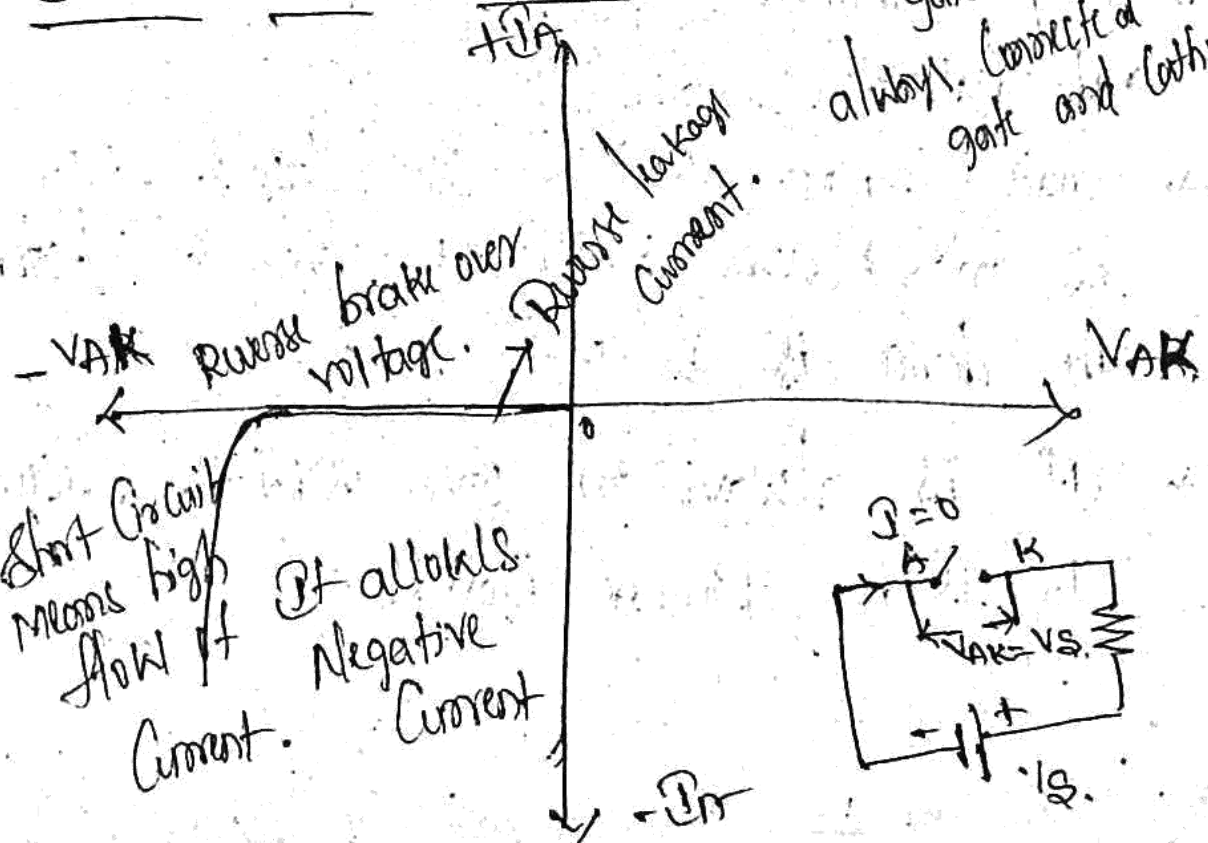 +IA
always. Connected
gate and Cath
Reverse leakage
Current.
Reverse brake over
voltage.
- VAK
VAK
0
Short Circuit
means high
flow of
Current.
It allows
Negative
Current
I=0
A
K
VAK=VS.
- +
VS.
-IA